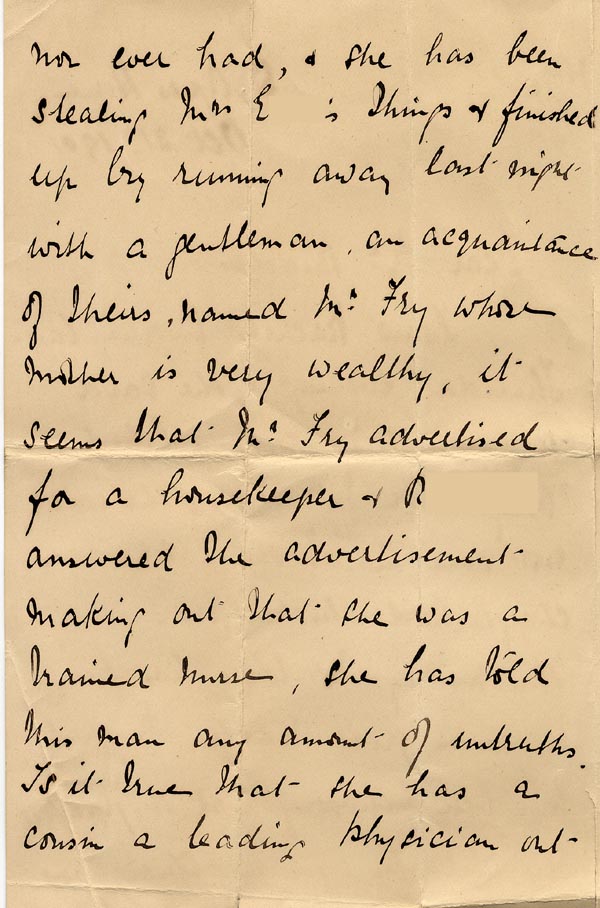 nor ever had, & she has been
stealing Mrs E 's things & finished
up by running away last night
with a gentleman, an acquaintance
of theirs, named Mr Fry whose
mother is very wealthy, it
seems that Mr Fry advertised
for a housekeeper & R
answered the advertisement
making out that she was a
trained nurse, she has told
this man any amount of untruths.
Is it true that she has a
cousin a leading physician out